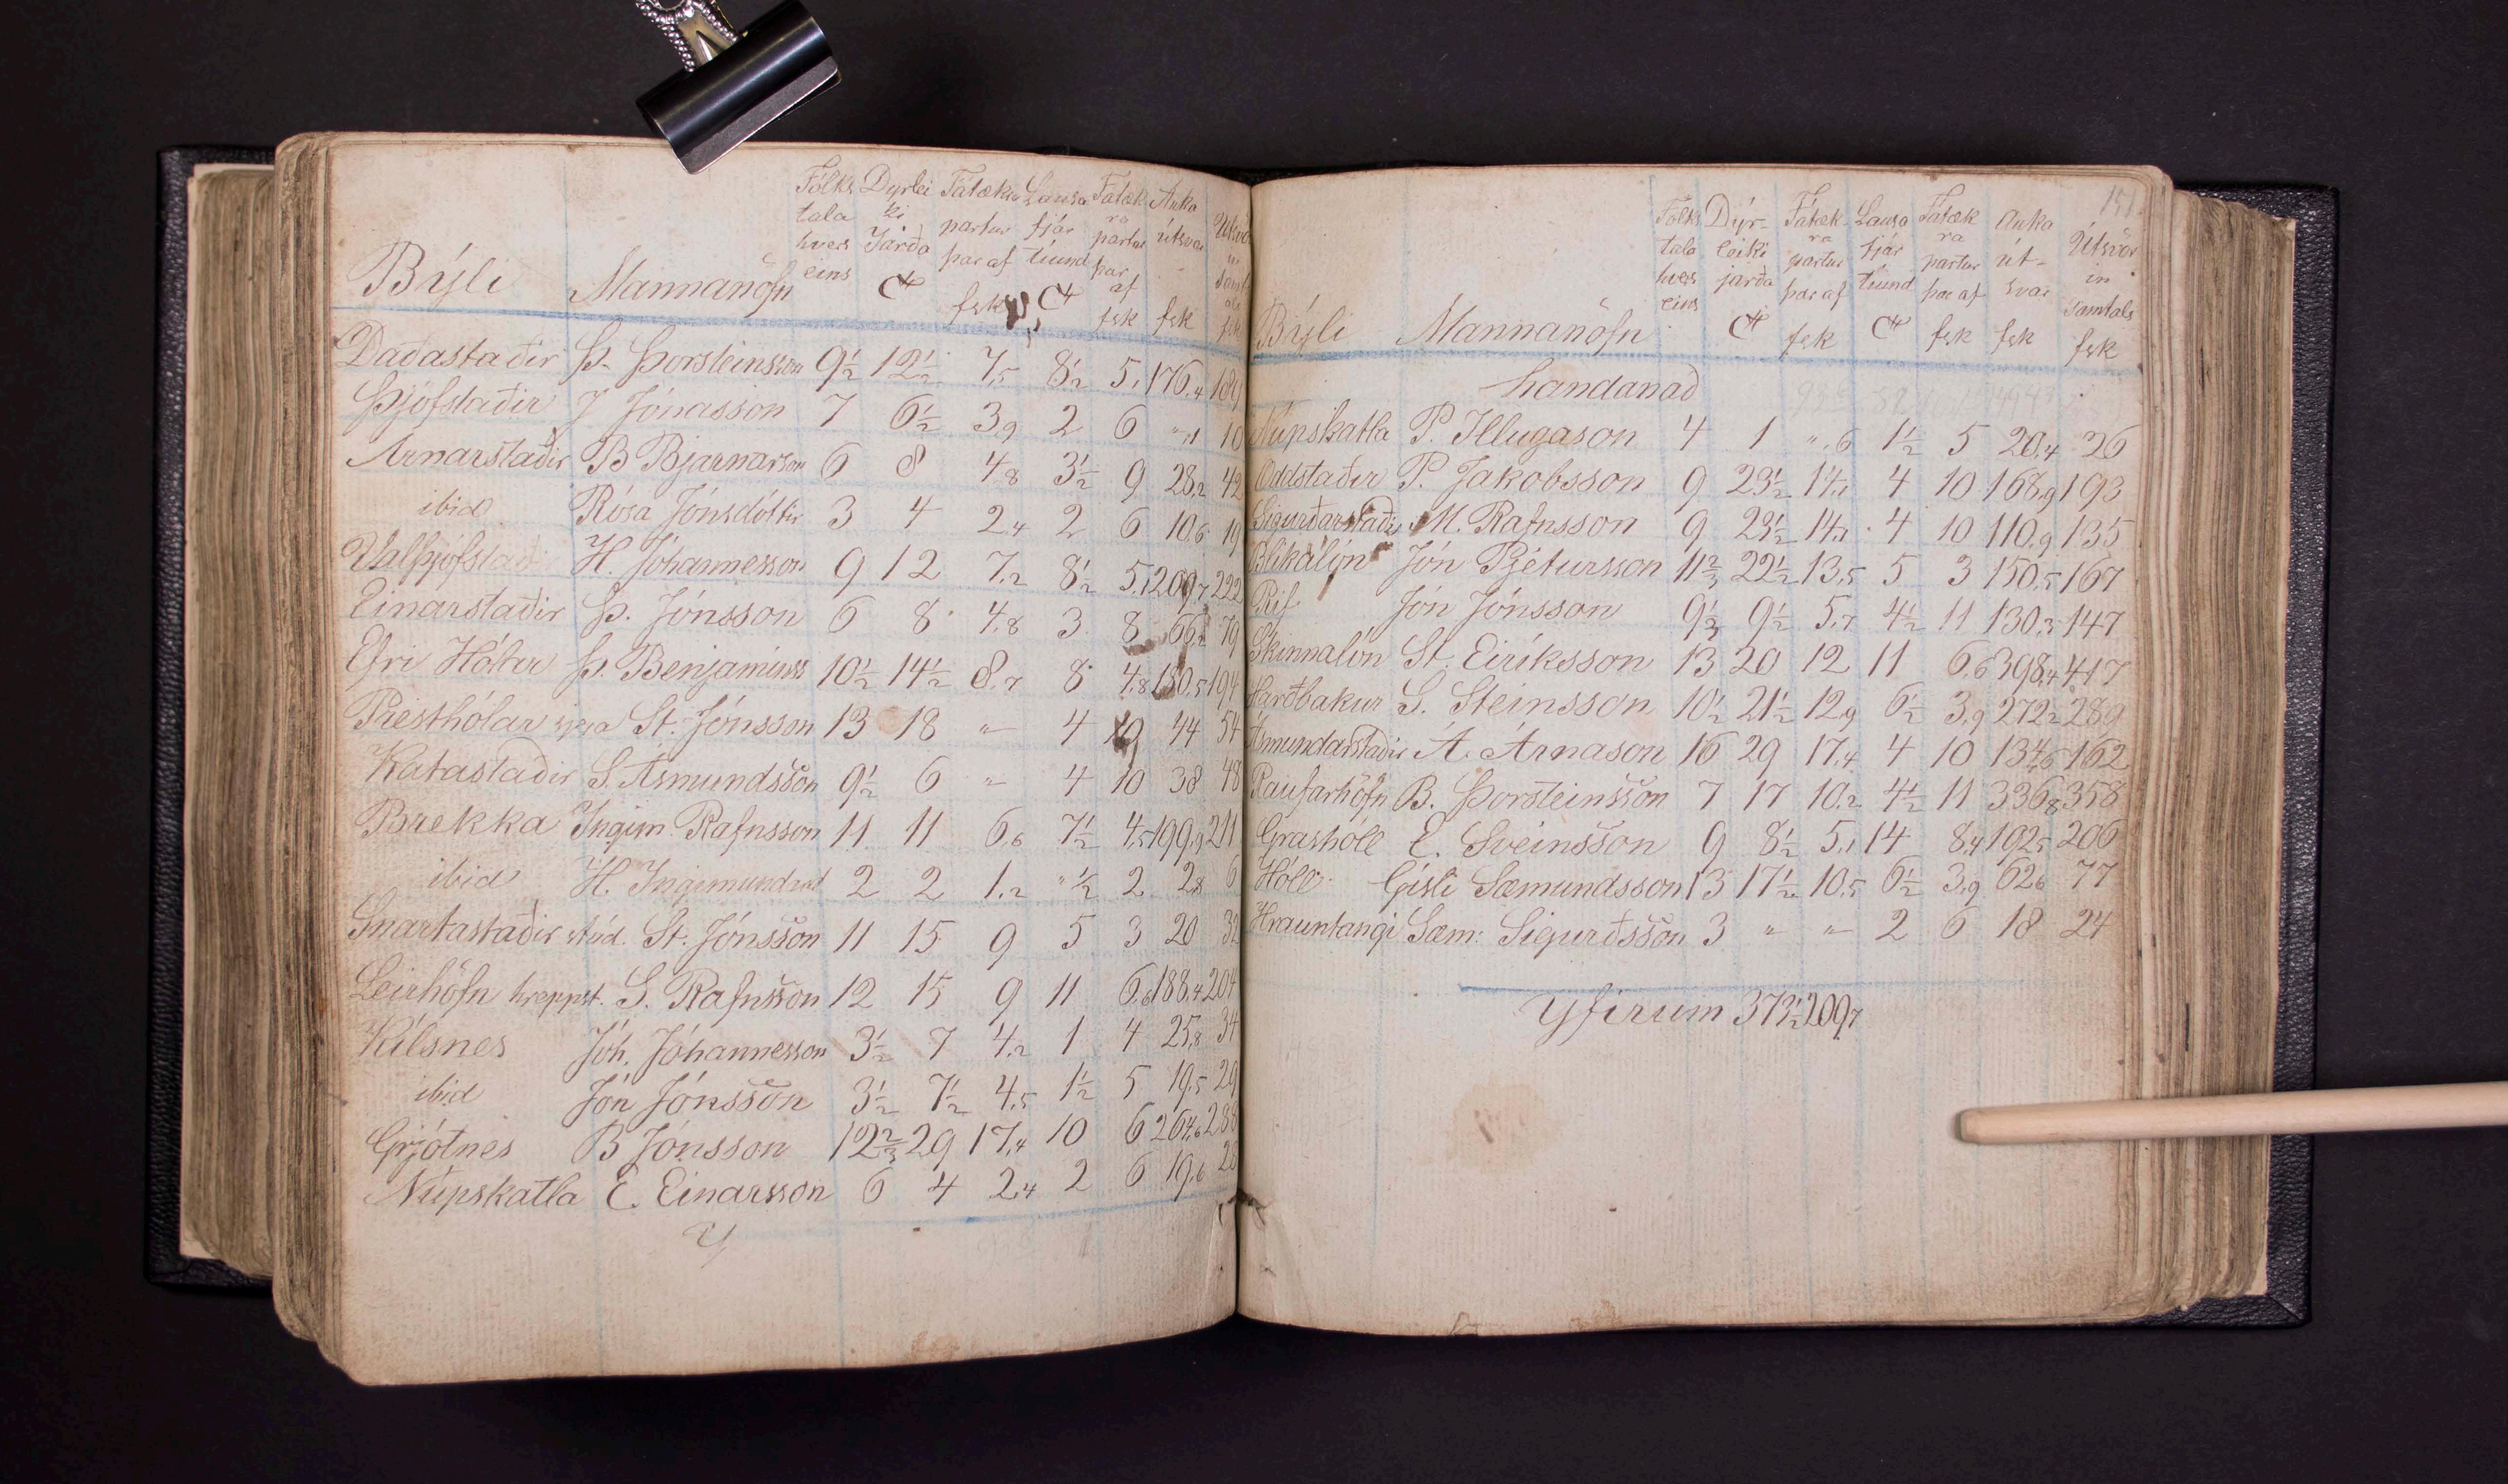 Fólks Dyrlei Fátækra Lausa Fátæk Auka
tala ki partur fjár ra útsvar Útsvör
hvers Jarða þar af tíund partur in
eins þar af Samt
Býli Mannanöfn fsk fsk fsk
Daðastaðir Þ. Þorsteinsson 9½ 12½ 7,5 8½ 5,1 176,4 189
Þjófstaðir J Jónasson 7 6½ 3,9 2 6 „,1 10
Arnarstaðir B Bjarnarson 6 8 4,8 3½ 9 28,2 42
ibid Rósa Jónsdóttir 3 4 2,4 2 6 10,6 19
Valþjófstað H. Jóhannesson 9 12 7,2 8½ 5,1 209,7 222
Einarstaðir Þ. Jónsson 6 8 4,8 3 8 66,2 79
Efri Hólar Þ. Benjamínss 10½ 14½ 8,7 8 4,8 180,5 194
Presthólar sjera St. Jónsson 13 18 „ 4 10 44 54
Katastaðir S. Ásmundsson 9½ 6 „ 4 10 38 48
Brekka Ingim. Rafnsson 11 11 6,6 7½ 4,5 199,9 211
ibid H. Ingimundard 2 2 1,2 „½ 2 2,8 6
Snartastaðir stúd. St. Jónsson 11 15 9 5 3 20 32
Leirhöfn hreppst. S. Rafnsson 12 15 9 11 6,6 188,4 204
Kílsnes Jóh. Jóhannesson 3½ 7 4,2 1 4 25,8 34
ibid Jón Jónsson 3½ 7½ 4,5 1½ 5 19,5 29
Grjótnes B Jónsson 12⅔ 29 17,4 10 6 264,6 288
Núpskatla E. Einarsson 6 4 2,4 2 6 19,6 28
Y
151
Fólks Dýr- Fátæk Lausa Fátæk Auka
tala leiki ra fjár ra út- Útsvör
hvers jarða partur tíund partur svar in
eins þar af þar af Samtals
Býli Mannanöfn fsk fsk fsk fsk
handanað
Núpskatla P. Illugason 4 1 „,6 1½ 5 20,4 26
Oddstaðir P. Jakobsson 9 23½ 14,1 4 10 168,9 193
Sigurðarstaðir M. Rafnsson 9 23½ 14,1 4 10 110,9 135
Blikalón Jón Pjétursson 11⅔ 22½ 13,5 5 3 150,5 167
Rif Jón Jónsson 9⅓ 9½ 5,7 4½ 11 130,3 147
Skinnalón St. Eiríksson 13 20 12 11 6,6 398,4 417
Harðbakur S. Steinsson 10½ 21½ 12,9 6½ 3,9 272,2 289
Ásmundarstaðir Á. Árnason 16 29 17,4 4 10 134,6 162
Raufarhöfn B. Þorsteinsson 7 17 10,2 4½ 11 336,8 358
Grashóll E. Sveinsson 9 8½ 5,1 14 8,4 192,5 206
Hóll Gísli Sæmundsson 13 17½ 10,5 6½ 3,9 62,6 77
Hrauntangi Sæm: Sigurðsson 3 „ „ 2 6 18 24
Yfirum 373½ 209,7